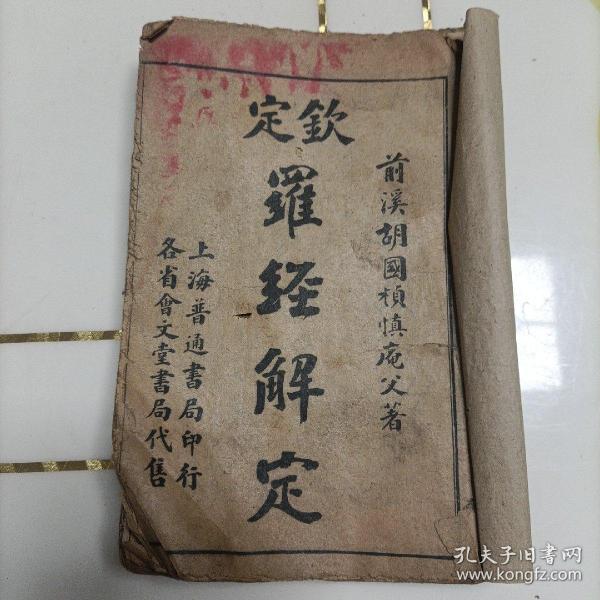 前溪胡國楨慎庵父著
欽定
羅經解定
上海普通書局印行
各省會文堂書局代售
孔夫子旧书网
www.kongfz.com